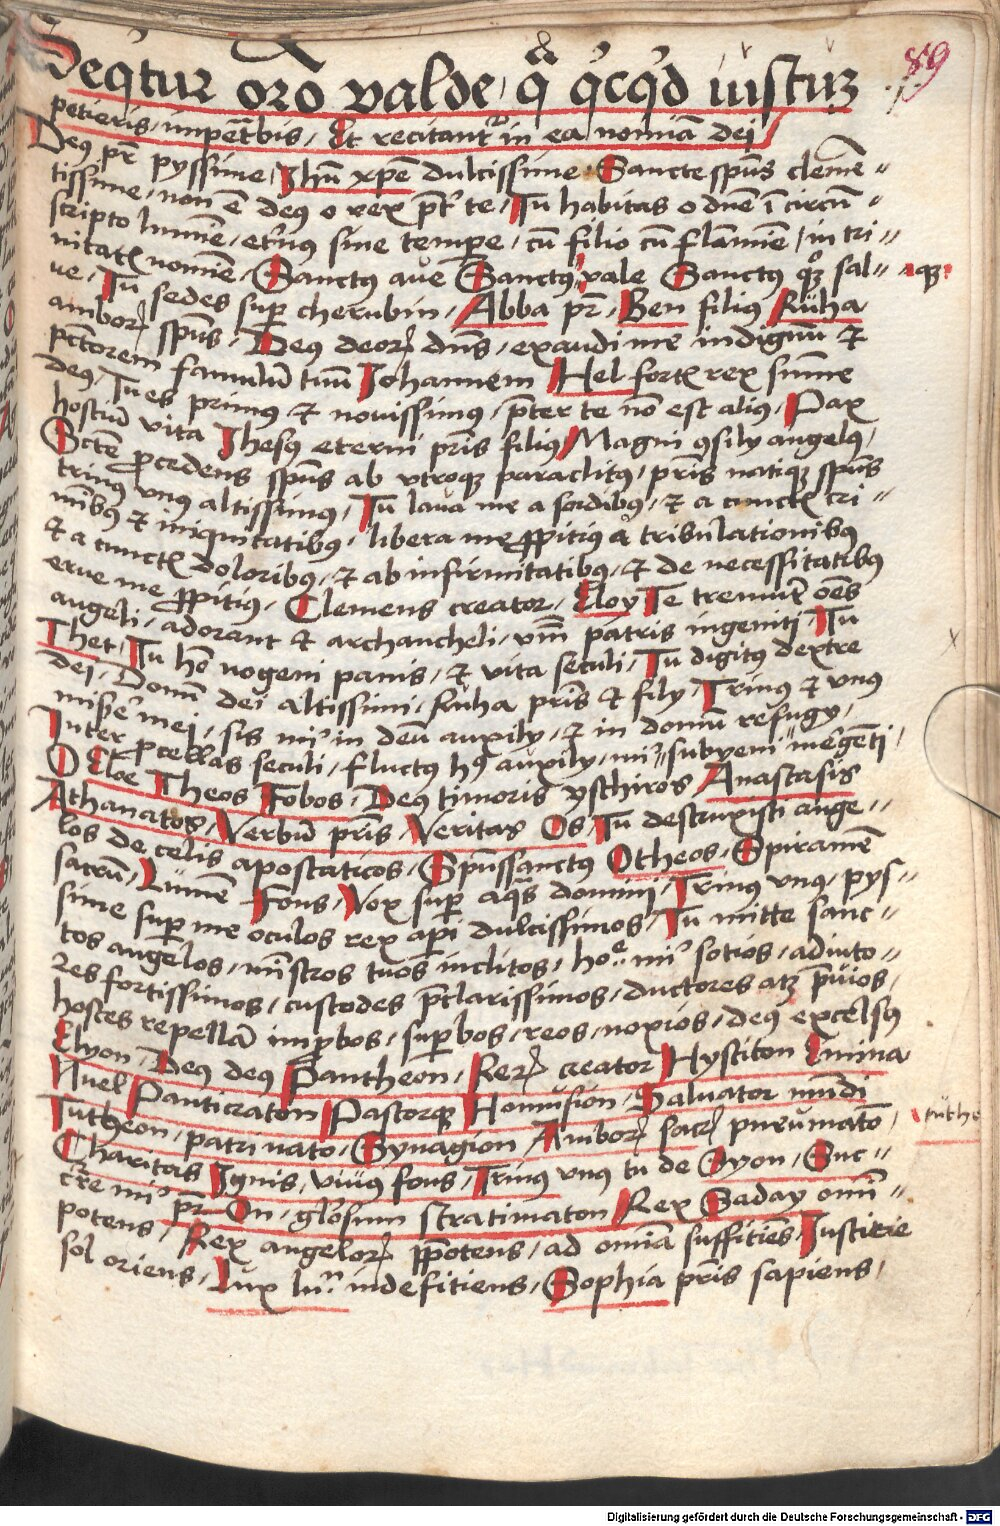 89
Seqtur oro valde, q̄ qcqd iustuȝ
petieris, impet̄bis, Et recitant̄ in ea nomīa dei
Deꝰ pr̄ pyssime, Jhū xp̄e dulcissime Sancte sp̄us cleme =
tissime, non ē deꝰ o rex p̄t te, Tu habitas o dn̄e ī circū =
scripto lumīe, et̄nꝰ sine tempe, cū filio cū flamīe, in tri =
nitatꝭ nomīe, Sanctꝰ ave Sanctꝰ vale Sanctꝰ qꝫ sal =
ve, Tu sedes sup cherubin, Abba pr̄, Ben filiꝰ Rüha
amborꝝ sp̄us, Deꝰ deorꝝ dn̄s, exaudi me indignū et
pctorem famulū tuū Johannem Hel fortꝭ rex sum̄e
deꝰ, Tu es primꝰ et novissimꝰ, p̄ter te nō est aliꝰ, Pax
hostiū vita Jhesꝰ eterni pr̄is filiꝰ Magni ꝯsily angelꝰ,
Sctē procedens sp̄us ab vtroqꝫ paraclitꝰ, pr̄is natiqꝫ sp̄us
trinꝰ vnꝰ altissimꝰ, Tu lava me a sordibꝰ, et a cunctꝭ cri =
minibꝰ et iniquitatibꝰ, libera me ꝓpitiꝰ a tribulationibꝰ
et a cunctꝭ doloribꝰ, et ab infirmitatibꝰ, et de necessitatibꝰ
erue me ꝓpitiꝰ, Clemens creator, Eloy Te tremūt oēs
angeli, adorant et archancheli, vim patris ingeniti, Tu
Thet, Tu hō nogeni panis, et vita seculi, Tu digitꝰ dextre
dei, Domꝰ dei altissimi, Ruha pr̄is et fily, Trinꝰ et vnꝰ
misere mei, sis mi in deū auxily, et in domū refugy,
Inter pcellas seculi, fluctꝰ hꝰ auxily, mi subveni megenti
O Eloe Theos Fobos, Deꝰ timoris yschiros Anastasis
Athanatos, Verbū pr̄is, Veritas Os, Tu destruxisti ange =
los de celis apostaticos, Sp̄ussanctꝰ Otheos, Spiramē
sacrū, Lumē Fons, Vox sup aqs domini, Trinꝰ vnꝰ, pys =
sime sup me oculos rex api dulcissimos, Tu mitte sanc =
tos angelos, mistros tuos inclitos, mi sotios, adiuto =
res fortissimos, custodes p̄clarissimos, ductores atꝫ p̄vios,
hostes repellā impbos, supbos, reos, noxios, deꝰ excelsꝰ
Elyon, Deꝰ deꝰ Pantheon, Rerꝝ creator Hystiton Emina
Nuel Panticraton Pastorqꝫ Homusion, Salvator mūdi
Tutheon, patri nato, Synagion Amborꝝ sacrꝝ pneumatō, tuthe
Charitas Ignis, viuꝰ fons, Trinꝰ vnꝰ tu de Syon, Suc =
cre mi pr̄ On, glosum stratimaton Rex Saday omi =
potens, Rex angelorꝝ p̄potens, ad omīa suffitiēs, Justitie
sol oriens, Lux indefitiens, Sophia pr̄is sapiens,
Digitalisierung gefördert durch die Deutsche Forschungsgemeinschaft - DFG